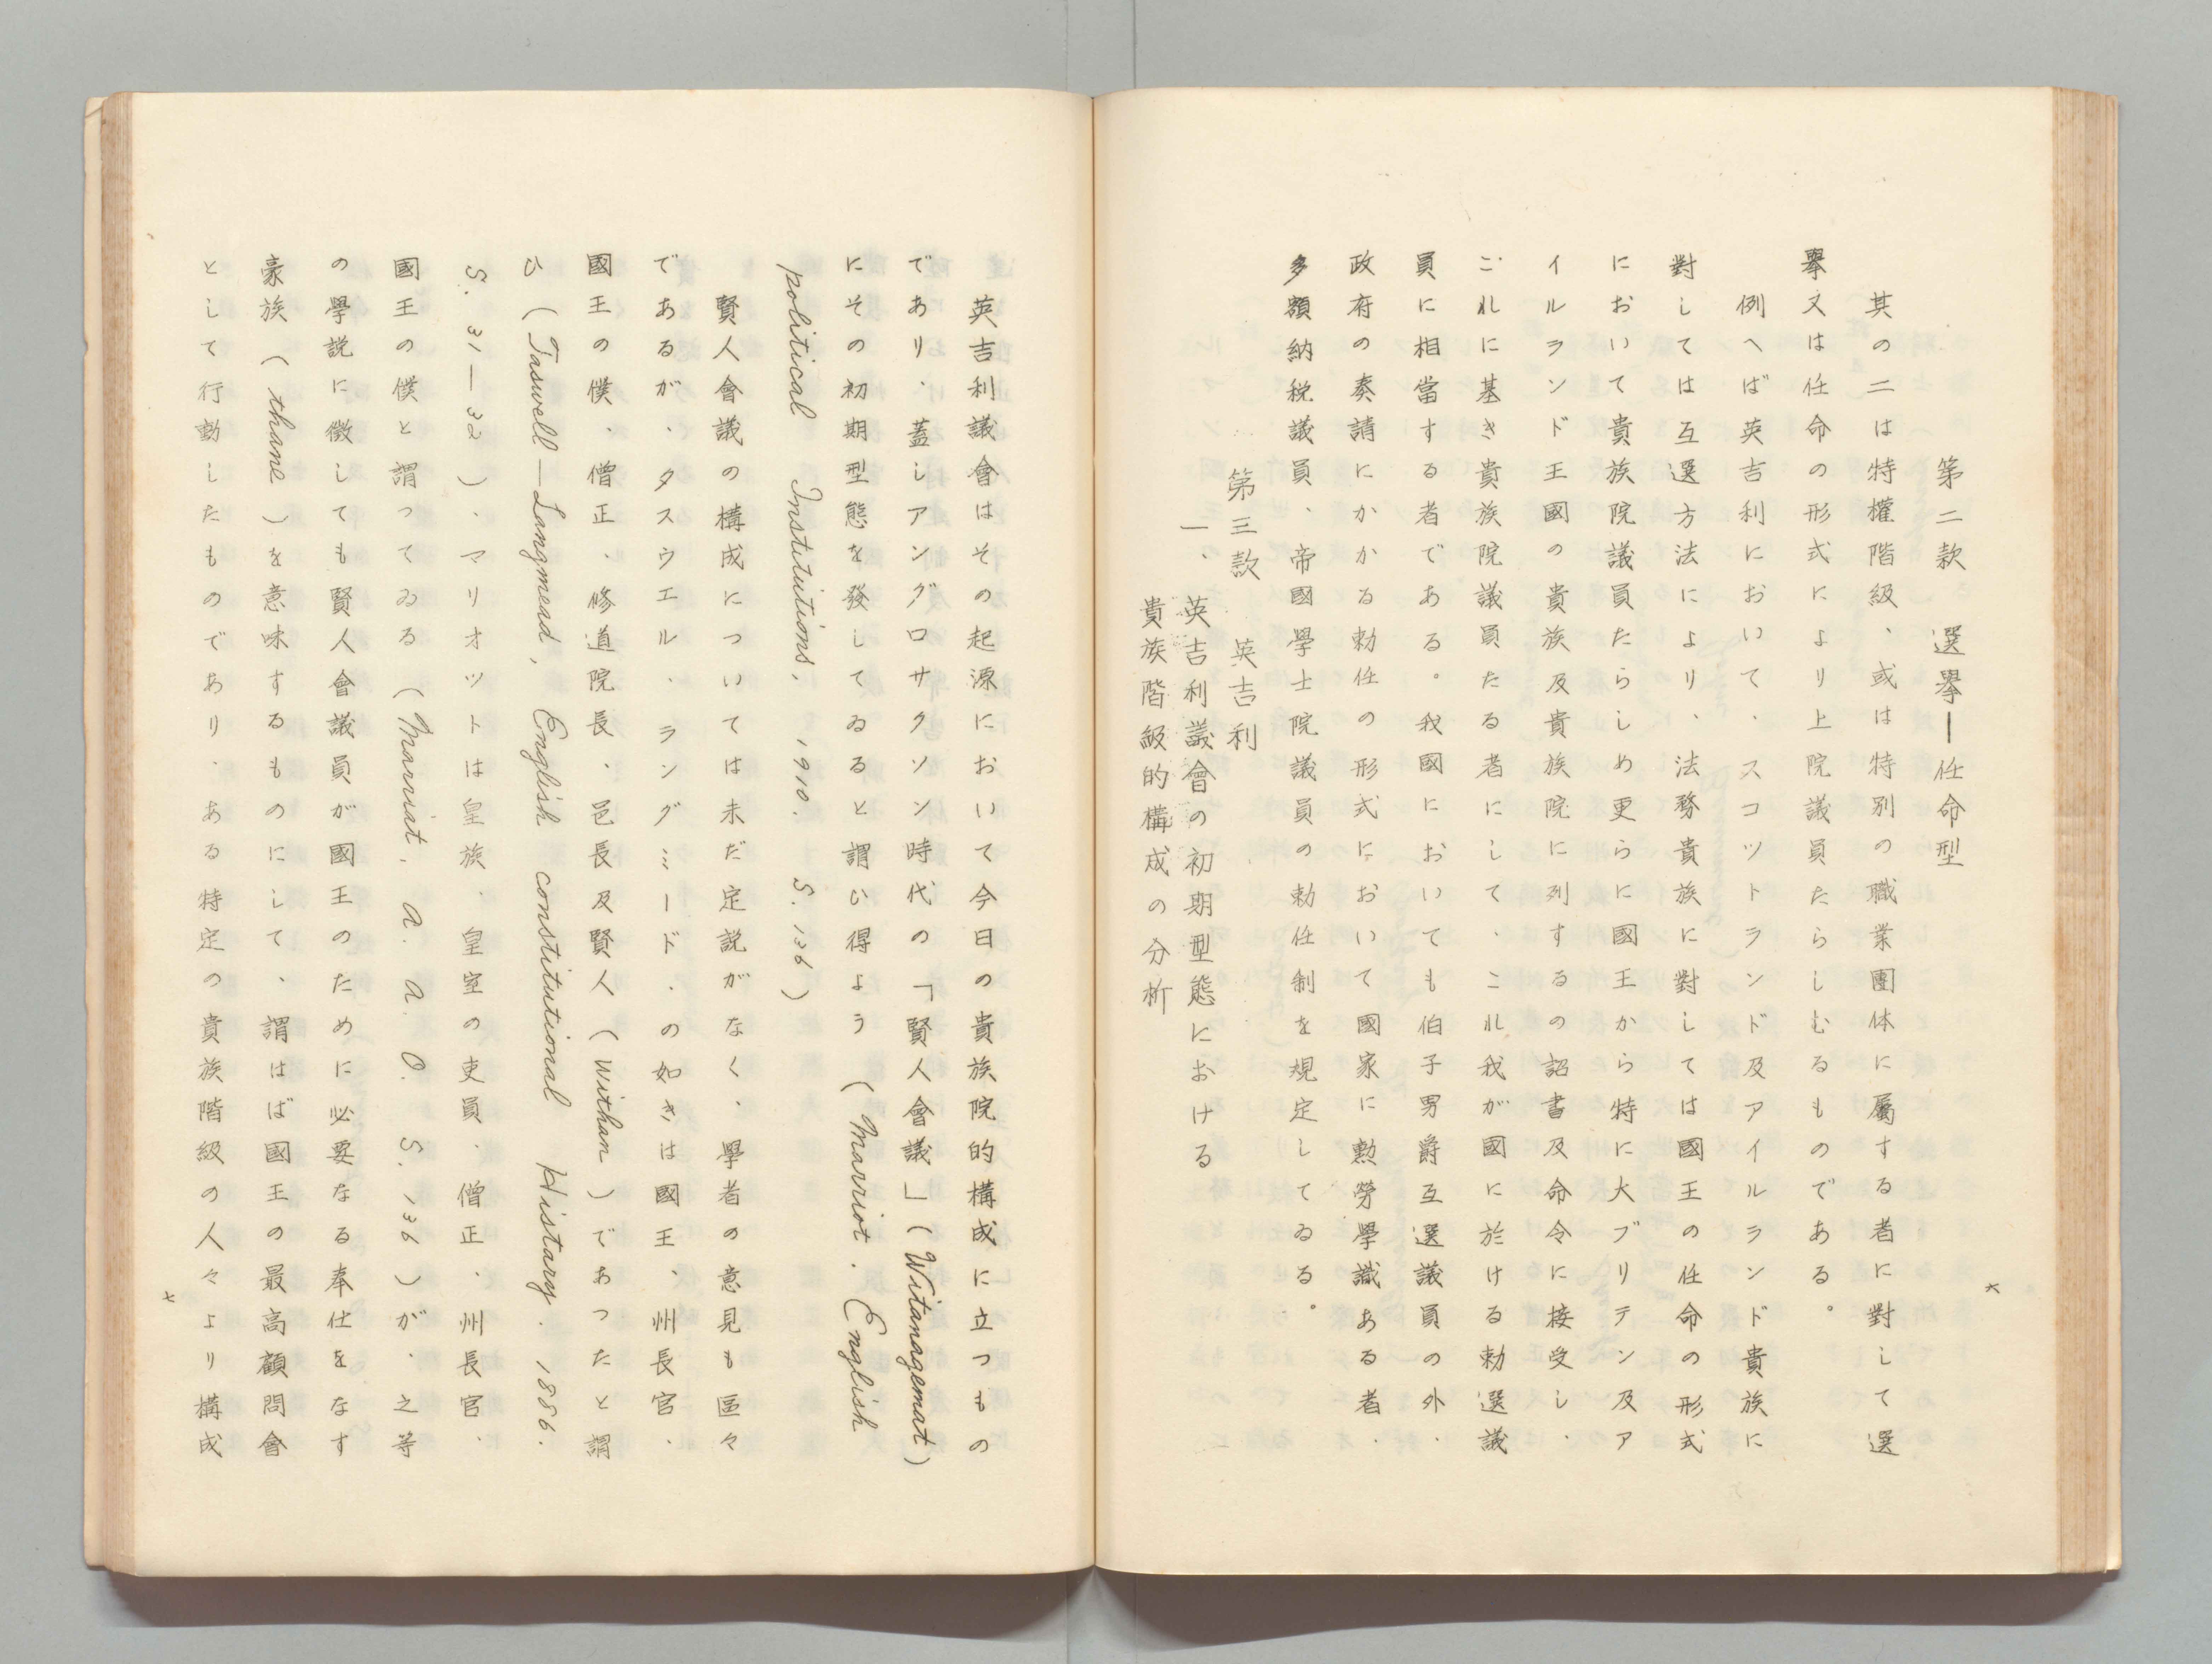 第二款　選擧―任命型
其の二は特權階級、或は特別の職業團体に屬する者に對して選
擧又は任命の形式により上院議員たらしむるものである。
例へば英吉利において、スコツトランド及アイルランド貴族に
對しては互選方法により、法務貴族に對しては國王の任命の形式
において貴族院議員たらしめ更らに國王から特に大ブリテン及ア
イルランド王國の貴族及貴族院に列するの詔書及命令に接受し、
これに基き貴族院議員たる者にして、これ我が國に於ける勅選議
員に相當する者である。我國においても伯子男爵互選議員の外、
政府の奏請にかかる勅任の形式において國家に勲勞學識ある者、
多額納税議員、帝國學士院議員の勅任制を規定してゐる。
第三款　英吉利
一、英吉利議會の初期型態における
貴族階級的構成の分析
六
英吉利議會はその起源において今日の貴族院的構成に立つもの
であり、蓋しアングロサクソン時代の「賢人會議」（Witanagemat）
にその初期型態を發してゐると謂ひ得よう（Marriot. English
political Institutions, 1910. S. 136）
賢人會議の構成については未だ定説がなく、學者の意見も區々
であるが、タスウエル、ラングミード、の如きは國王、州長官、
國王の僕、僧正、修道院長、邑長及賢人（Withan）であつたと謂
ひ（Taswell―Langmead, English constitutional Histary. 1886.
S. 31―32）、マリオツトは皇族、皇室の吏員、僧正、州長官、
國王の僕と謂つてゐる（Marriat. a. a. O. S. 136）が、之等
の學説に徴しても賢人會議員が國王のために必要なる奉仕をなす
豪族（thane）を意味するものにして、謂はば國王の最高顧問會
として行動したものであり、ある特定の貴族階級の人々より構成
七